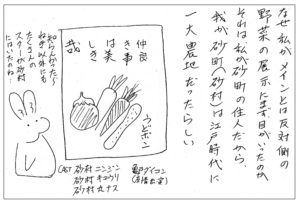 なぜ私がメインとは反対側の
野菜の展示にまず目がいったのか、
それは私が砂町の住人だから。
我が砂町(砂村)は江戸時代に
一大農地だったらしい
仲良
き事
は美
しき
哉
うどポン
知らんかった…
ねぎ以外にも
たくさんの
スターが砂村
にはいたのね…
CAST 砂村ニンジン
砂村キュウリ
砂村丸ナス
亀戸ダイコン